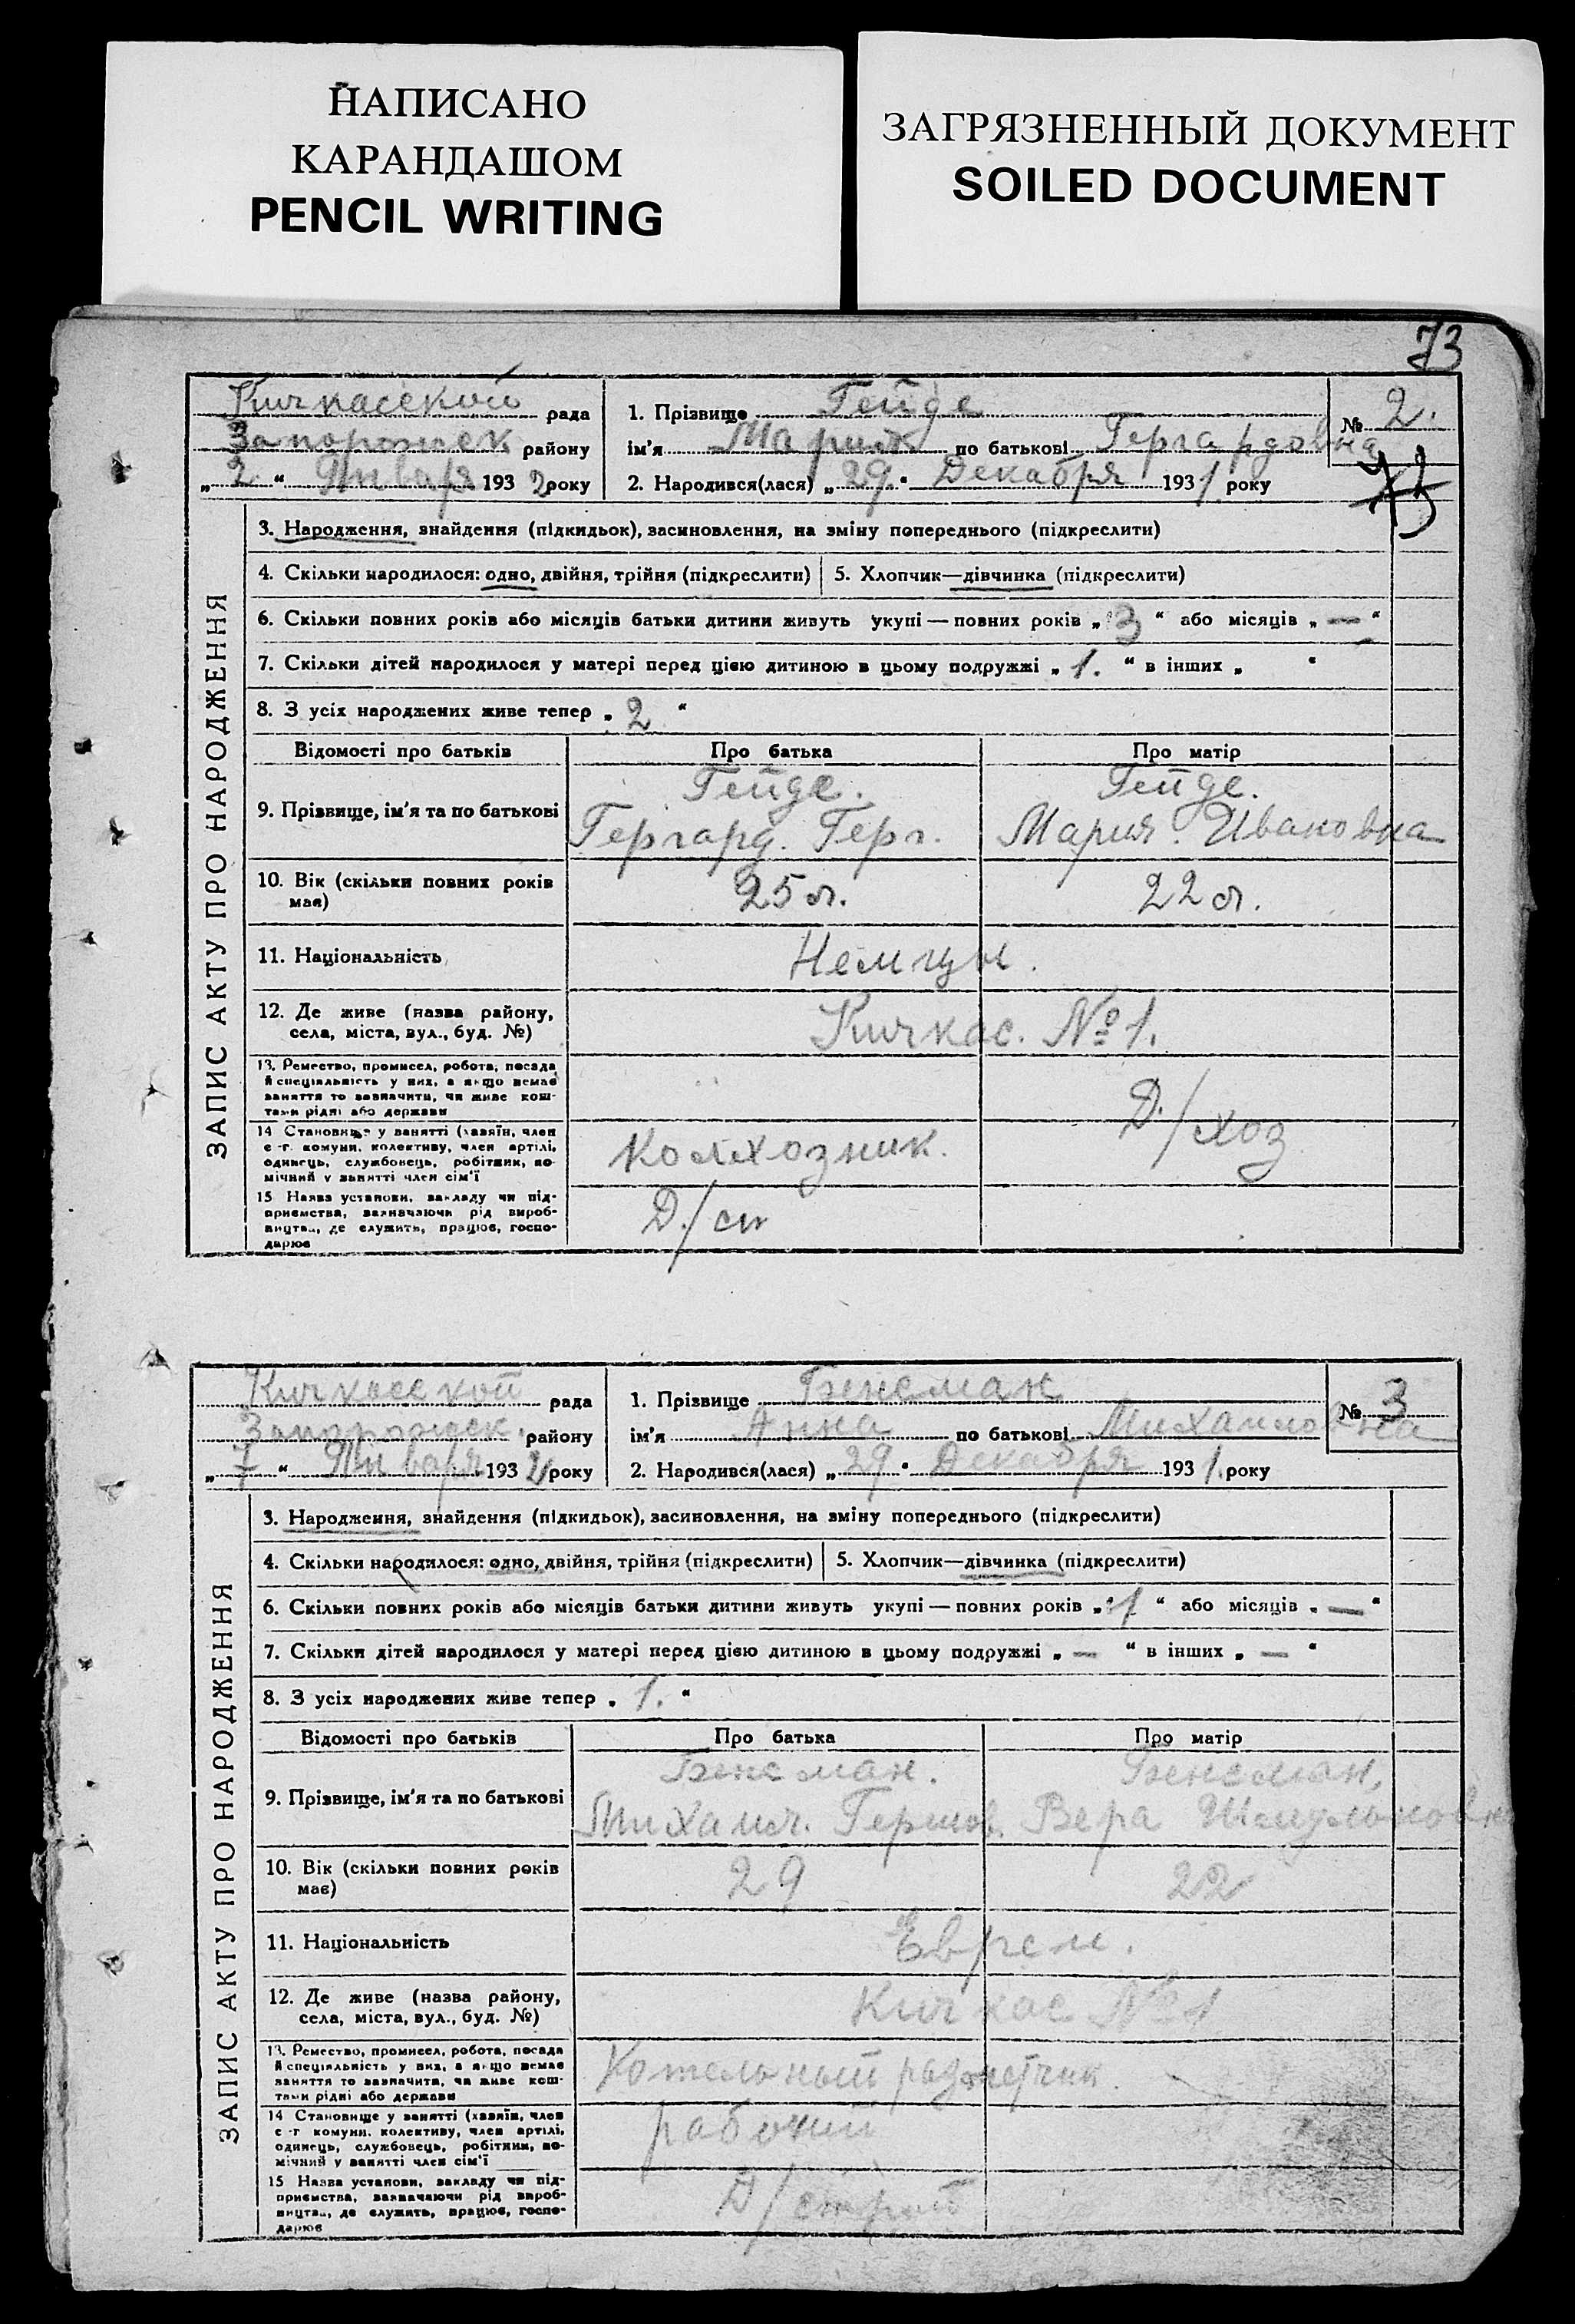 НАПИСАНО
КАРАНДАШОМ
PENCIL WRITING
ЗАГРЯЗНЕННЫЙ ДОКУМЕНТ
SOILED DOCUMENT
73
Кичкасской рада
Запорожск району
„2“ Января 1932 року
1. Прізвище Гейде
ім'я Мария по батькові Гергардовна
2. Народився(лася) „29“ Декабря 1931 року
№ 2.
ЗАПИС АКТУ ПРО НАРОДЖЕННЯ
3. Народження, знайдення (підкидьок), засиновлення, на зміну попереднього (підкреслити)
4. Скільки народилося: одно, двійня, трійня (підкреслити) 5. Хлопчик—дівчинка (підкреслити)
6. Скільки повних років або місяців батьки дитини живуть укупі — повних років „3“ або місяців „—“
7. Скільки дітей народилося у матері перед цією дитиною в цьому подружжі „1.“ в інших „ “
8. З усіх народжених живе тепер „2“
Відомості про батьків Про батька Про матір
9. Прізвище, ім'я та по батькові Гейде. Гергард. Герг. Гейде. Мария. Ивановна
10. Вік (скільки повних років має) 25 л. 22 л.
11. Національність Немцы.
12. Де живе (назва району, села, міста, вул., буд. №) Кичкас. № 1.
13. Ремество, промисел, робота, посада й спеціяльність у них, а якщо немає заняття то зазначити, чи живе коштами рідні або держави
Д./хоз
14 Становище у занятті (хазяїн, член с.-г. комуни, колективу, член артілі, одинець, службовець, робітник, помічний у занятті член сім'ї Колхозник.
15 Назва установи, закладу чи підприємства, зазначаючи рід виробництва, де служить, працює, господарює
Кичкасской рада
Запорожск. району
„7“ Января 1932 року
1. Прізвище Генсман
ім'я Анна по батькові Михаиловна
2. Народився(лася) „29“ Декабря 1931. року
№ 3
ЗАПИС АКТУ ПРО НАРОДЖЕННЯ
3. Народження, знайдення (підкидьок), засиновлення, на зміну попереднього (підкреслити)
4. Скільки народилося: одно, двійня, трійня (підкреслити) 5. Хлопчик—дівчинка (підкреслити)
6. Скільки повних років або місяців батьки дитини живуть укупі — повних років „1“ або місяців „—“
7. Скільки дітей народилося у матері перед цією дитиною в цьому подружжі „—“ в інших „—“
8. З усіх народжених живе тепер „1.“
Відомості про батьків Про батька Про матір
9. Прізвище, ім'я та по батькові Генсман. Михаил. Генсман, Вера
10. Вік (скільки повних років має) 29 22
11. Національність Евреи.
12. Де живе (назва району, села, міста, вул., буд. №) Кичкас № 1
13. Ремество, промисел, робота, посада й спеціяльність у них, а якщо немає заняття то зазначити, чи живе коштами рідні або держави Котельный разметчик.
14 Становище у занятті (хазяїн, член с.-г. комуни, колективу, член артілі, одинець, службовець, робітник, помічний у занятті член сім'ї рабочий
15 Назва установи, закладу чи підприємства, зазначаючи рід виробництва, де служить, працює, господарює Д/строй